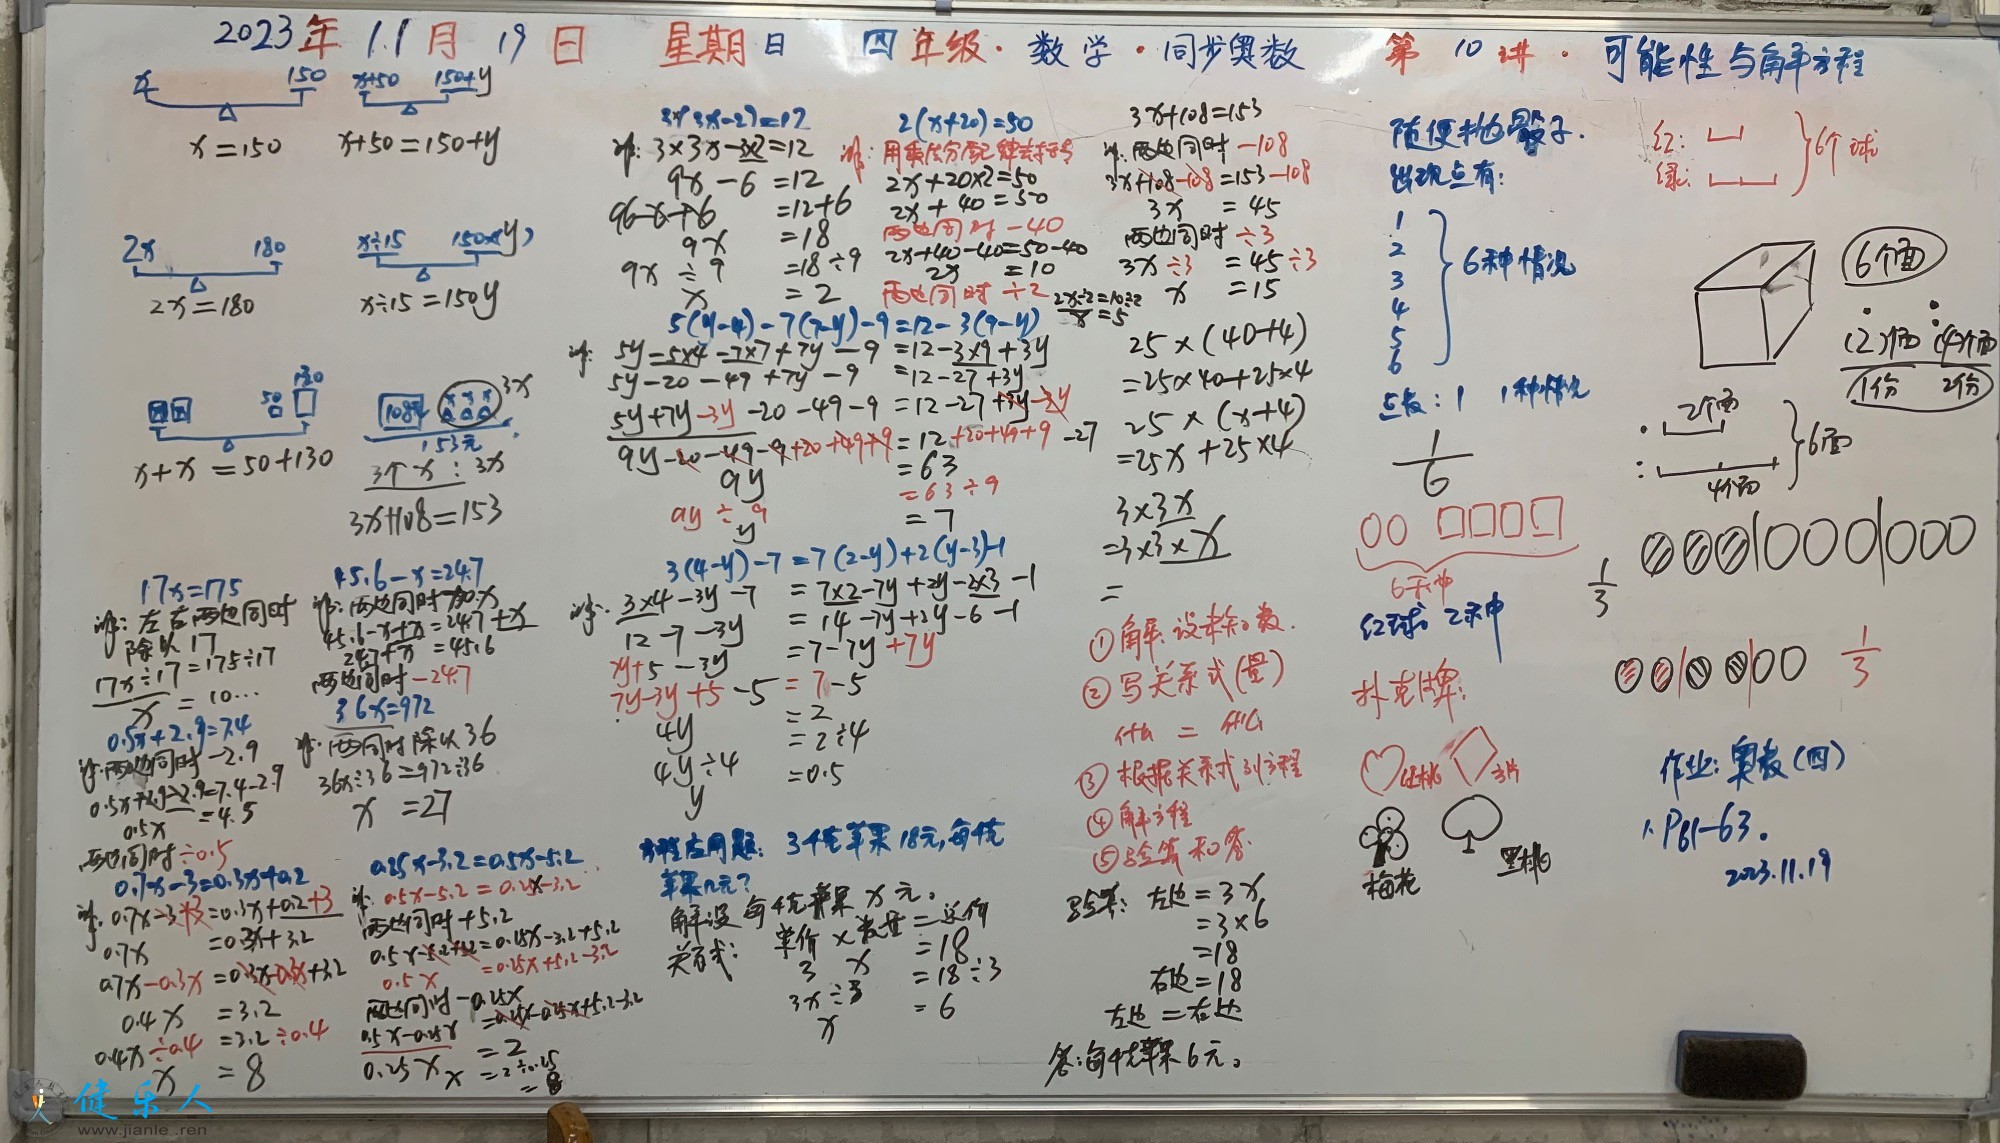 2023年 11月 19日 星期日 四年级·数学·同步奥数 第10讲·可能性与解方程
x 150
x=150
x+50 150+y
x+50=150+y
2x 180
2x=180
x÷15 150×y
x÷15=150y
50 130
x+x=50+130
108 3x
153元
3个x:3x
3x+108=153
17x=175
解:左右两边同时
除以17
17x÷17=175÷17
x=10...
45.6-x=24.7
45.6-x+x=24.7+x
24.7+x=45.6
两边同时-24.7
0.5x+2.9=7.4
解:两边同时-2.9
0.5x+2.9-2.9=7.4-2.9
0.5x=4.5
两边同时÷0.5
36x=972
解:两边同时除以36
36x÷36=972÷36
x=27
0.7x-3=0.3x+0.2
解:0.7x-3+3=0.3x+0.2+3
0.7x=0.3x+3.2
0.7x-0.3x=0.3x-0.3x+3.2
0.4x=3.2
0.4x÷0.4=3.2÷0.4
x=8
0.25x-3.2=0.5x-5.2
解:0.5x-5.2=0.25x-3.2
两边同时+5.2
0.5x-5.2+5.2=0.25x-3.2+5.2
0.5x=0.25x+5.2-3.2
两边同时-0.25x
0.5x-0.25x=0.25x-0.25x+5.2-3.2
0.25x=2
x=2÷0.25
=8
解:3×3x-3×2=12
9x-6=12
=12+6
9x=18
9x÷9=18÷9
x=2
2(x+20)=50
解:用乘法分配律去括号
2x+20×2=50
2x+40=50
两边同时-40
2x+40-40=50-40
2x=10
两边同时÷2
2x÷2=10÷2
x=5
3x+108=153
解:两边同时-108
3x+108-108=153-108
3x=45
两边同时÷3
3x÷3=45÷3
x=15
5(y-4)-7(7-y)-9=12-3(9-y)
解:5y-5×4-7×7+7y-9=12-3×9+3y
5y-20-49+7y-9=12-27+3y
5y+7y-3y-20-49-9=12-27+3y-3y
9y-20-49-9+20+49+9=12+20+49+9-27
9y=63
9y÷9=63÷9
y=7
25×(40+4)
=25×40+25×4
25×(x+4)
=25x+25×4
3×3x
=3×3×x
=
3(4-y)-7=7(2-y)+2(y-3)-1
解:3×4-3y-7=7×2-7y+2y-2×3-1
12-7-3y=14-7y+2y-6-1
5-3y=7-7y+7y
7y-3y+5-5=7-5
4y=2
4y÷4=2÷4
y=0.5
①解:设未知数.
②写关系式(量)
什么=什么
③根据关系式列方程
④解方程
⑤验算和答
方程应用题:3千克苹果18元,每千克
苹果几元?
解设每千克苹果x元。
关系式:单价×数量=总价
3x=18
3x÷3=18÷3
x=6
验算:左边=3x
=3×6
=18
右边=18
左边=右边
答:每千克苹果6元。
随便抛骰子.
出现点有:
1
2
3
4
5
6
6种情况
点数:1 1种情况
1
6
6种
红球:2种
扑克牌:
红桃 方片
梅花 黑桃
红:
绿:
6个球
6个面
(2)个面 (4)个面
1份 2份
2个面
4个面
6面
1
3
1
3
作业:奥数(四)
1.P61-63。
2023.11.19
健乐人
www.jianle.ren